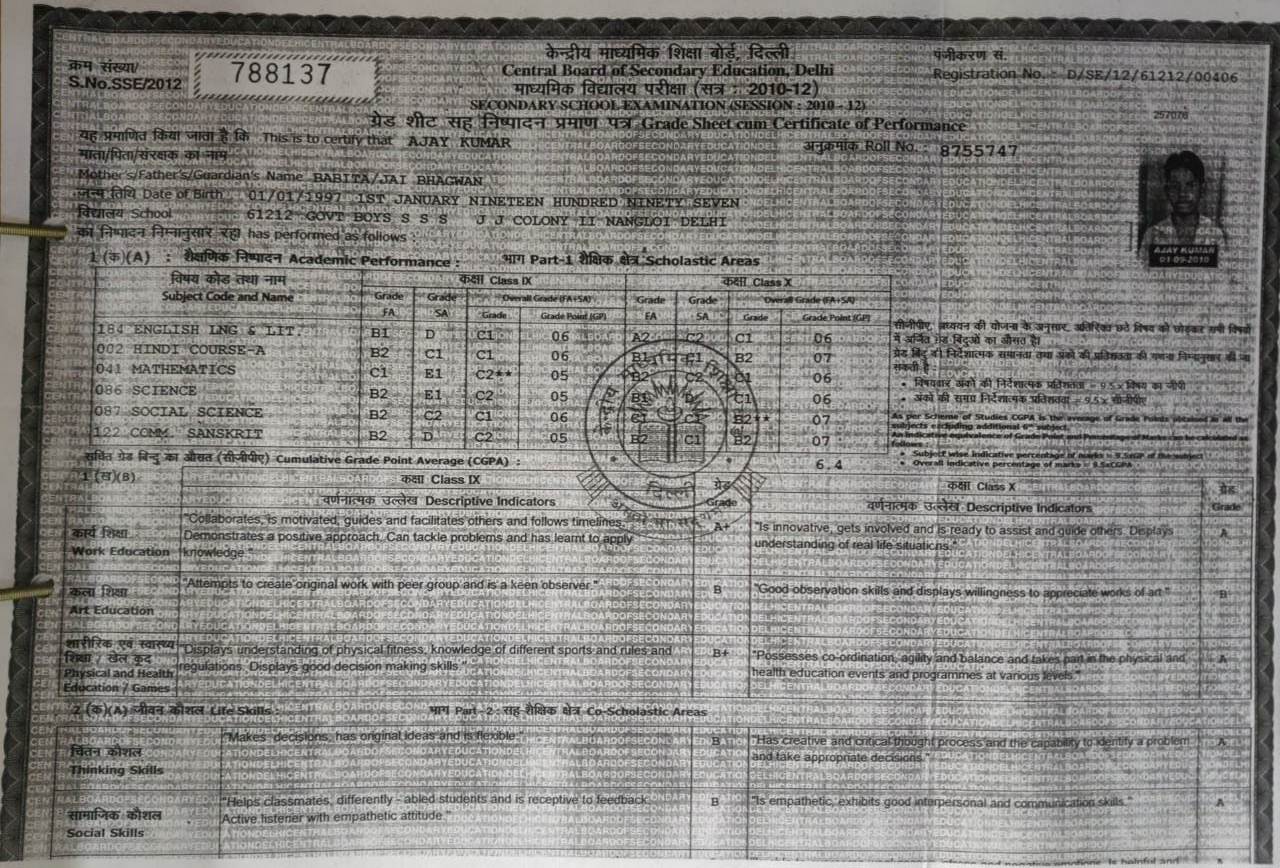 क्रम संख्या/
S.No.SSE/2012
788137
केन्द्रीय माध्यमिक शिक्षा बोर्ड, दिल्ली
Central Board of Secondary Education, Delhi
माध्यमिक विद्यालय परीक्षा (सत्र : 2010-12)
SECONDARY SCHOOL EXAMINATION (SESSION : 2010 - 12)
ग्रेड शीट सह निष्पादन प्रमाण पत्र Grade Sheet cum Certificate of Performance
पंजीकरण सं.
Registration No. : D/SE/12/61212/00406
257076
यह प्रमाणित किया जाता है कि This is to certify that AJAY KUMAR
अनुक्रमांक Roll No. : 8755747
माता/पिता/संरक्षक का नाम
Mother's/Father's/Guardian's Name BABITA/JAI BHAGWAN
जन्म तिथि Date of Birth 01/01/1997 1ST JANUARY NINETEEN HUNDRED NINETY SEVEN
विद्यालय School 61212 GOVT BOYS S S S J J COLONY II NANGLOI DELHI
का निष्पादन निम्नानुसार रहा has performed as follows :
AJAY KUMAR
01-09-2010
1 (क)(A) : शैक्षणिक निष्पादन Academic Performance : भाग Part-1 शैक्षिक क्षेत्र Scholastic Areas
विषय कोड तथा नाम कक्षा Class IX कक्षा Class X
Subject Code and Name Grade FA Grade SA Overall Grade (FA+SA) Grade Grade Point (GP) Grade FA Grade SA Overall Grade (FA+SA) Grade Grade Point (GP)
184 ENGLISH LNG & LIT. B1 D C1 06 A2 C2 C1 06
002 HINDI COURSE-A B2 C1 C1 06 B1 C1 B2 07
041 MATHEMATICS C1 E1 C2** 05 B2 C2 C1 06
086 SCIENCE B2 E1 C2 05 B1 C1 06
087 SOCIAL SCIENCE B2 C2 C1 06 C1 B2** 07
122 COMM. SANSKRIT B2 D C2 05 B2 C1 B2 07
सीजीपीए, अध्ययन की योजना के अनुसार, अतिरिक्त छठे विषय को छोड़कर सभी विषयों
में अर्जित ग्रेड बिंदुओं का औसत है।
ग्रेड बिंदु की निर्देशात्मक समानता तथा अंकों की प्रतिशतता की गणना निम्नानुसार की जा
सकती है :
• विषयवार अंकों की निर्देशात्मक प्रतिशतता = 9.5 x विषय का जीपी
• अंकों की समग्र निर्देशात्मक प्रतिशतता = 9.5 x सीजीपीए
As per Scheme of Studies CGPA is the average of Grade Points obtained in all the
subjects excluding additional 6th subject.
Indicative equivalence of Grade Point and Percentage of Marks can be calculated as
follows :
• Subject wise indicative percentage of marks = 9.5xGP of the subject
• Overall indicative percentage of marks = 9.5xCGPA
संचित ग्रेड बिन्दु का औसत (सीजीपीए) Cumulative Grade Point Average (CGPA) : 6.4
दिल्ली
1 (ख)(B) कक्षा Class IX ग्रेड Grade कक्षा Class X ग्रेड Grade
वर्णनात्मक उल्लेख Descriptive Indicators वर्णनात्मक उल्लेख Descriptive Indicators
कार्य शिक्षा
Work Education
"Collaborates, is motivated, guides and facilitates others and follows timelines.
Demonstrates a positive approach. Can tackle problems and has learnt to apply
knowledge."
A+
"Is innovative, gets involved and is ready to assist and guide others. Displays
understanding of real life situations."
A
कला शिक्षा
Art Education
"Attempts to create original work with peer group and is a keen observer."
B
"Good observation skills and displays willingness to appreciate works of art."
B
शारीरिक एवं स्वास्थ्य
शिक्षा / खेल कूद
Physical and Health
Education / Games
"Displays understanding of physical fitness, knowledge of different sports and rules and
regulations. Displays good decision making skills."
B+
"Possesses co-ordination, agility and balance and takes part in the physical and
health education events and programmes at various levels."
A
2 (क)(A) जीवन कौशल Life Skills : भाग Part-2 : सह शैक्षिक क्षेत्र Co-Scholastic Areas
चिंतन कौशल
Thinking Skills
"Makes decisions, has original ideas and is flexible."
B
"Has creative and critical thought process and the capability to identify a problem
and take appropriate decisions."
A
सामाजिक कौशल
Social Skills
"Helps classmates, differently - abled students and is receptive to feedback.
Active listener with empathetic attitude."
B
"Is empathetic, exhibits good interpersonal and communication skills."
A
is helpful and